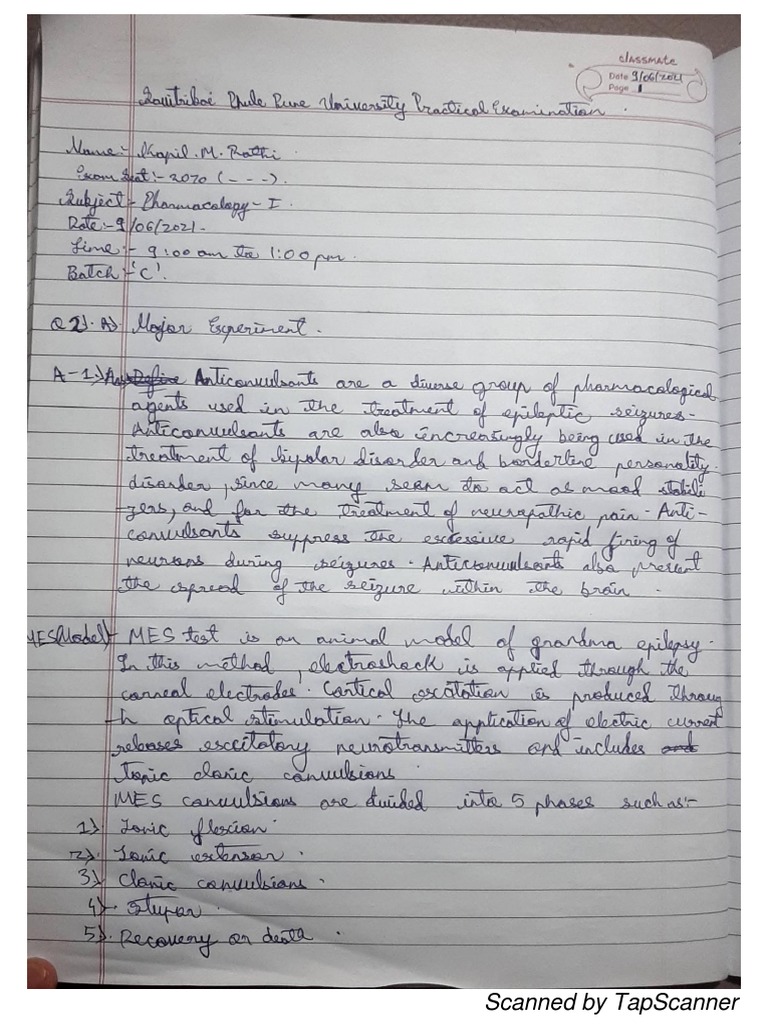 classmate
Date 9/06/2021
Page 1
Savitribai Phule Pune University Practical Examination.
Name:- Kapil. M. Rathi.
Exam Seat:- 2070 (---).
Subject:- Pharmacology - I.
Date:- 9/06/2021.
Time:- 9:00 am to 1:00 pm.
Batch:- 'C'.
Q 2). A) Major Experiment.
A-1) Anticonvulsants are a diverse group of pharmacological
agents used in the treatment of epileptic seizures.
Anticonvulsants are also increasingly being used in the
treatment of bipolar disorder and borderline personality
disorder, since many seem to act as mood stabili
zers, and for the treatment of neuropathic pain. Anti-
convulsants suppress the excessive rapid firing of
neurons during seizures. Anticonvulsants also prevent
the spread of the seizure within the brain.
MES(Model)- MES test is an animal model of grandma epilepsy.
In this method, electroshock is applied through the
corneal electrodes. Cortical excitation is produced throug
h optical stimulation. The application of electric current
releases excitatory neurotransmitters and includes and
tonic clonic convulsions.
MES convulsions are divided into 5 phases such as:-
1). Tonic flexion.
2). Tonic extensor.
3) Clonic convulsions.
4). Stupor.
5). Recovery or death.
Scanned by TapScanner